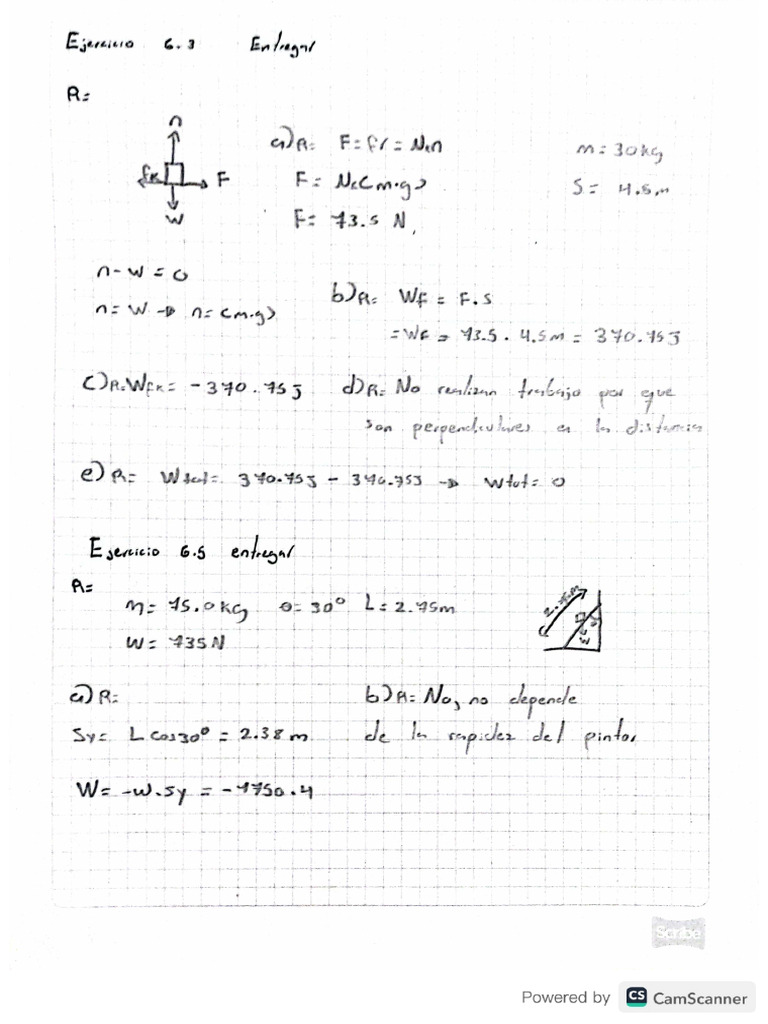 Ejercicio 6.3 Entregar
R=
n
fk F
W
a) R= F = fk = Nkn
F = Nk(m·g)
F = 73.5 N,
m = 30kg
S = 4.5m
n - W = 0
n = W → n = (m·g)
b) R= WF = F.S
= WF = 73.5 · 4.5m = 330.75J
c) R= Wfk = - 330.75J
d) R= No realizan trabajo por que
son perpendiculares a la distancia
e) R= Wtot = 330.75J - 330.75J → Wtot = 0
Ejercicio 6.5 entregar
R=
m = 75.0kg θ = 30° L = 2.75m
W = 735N
2.75m
W
a) R=
Sy = L cos30° = 2.38 m
W = -W.Sy = -1750.4
b) R= No, no depende
de la rapidez del pintor
Scribe
Powered by CS CamScanner